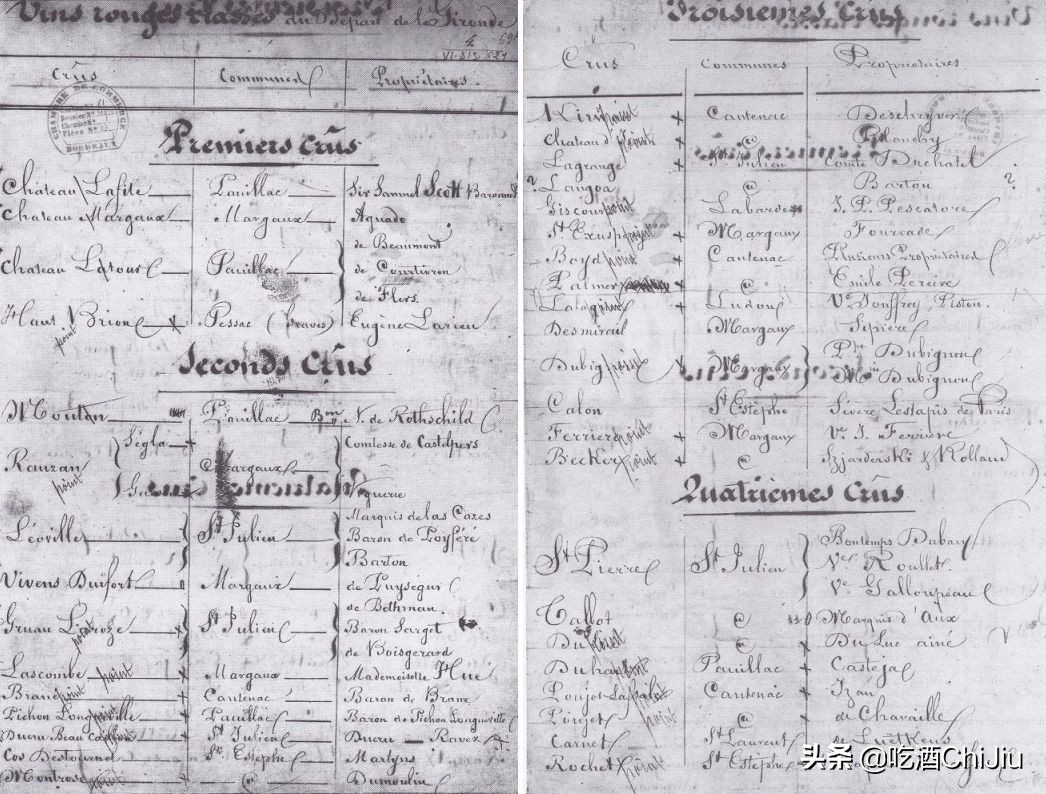 Vins rouges classés du Départ. de la Gironde
Crûs Communes Propriétaires
CHAMBRE DE COMMERCE BORDEAUX
Premiers Crûs
Chateau Lafite Pauillac Sir Samuel Scott Baronnet
Chateau Margaux Margaux Aguado
de Beaumont
Chateau Latour Pauillac de Courtivron
de Flers.
Haut Brion Pessac (Graves) Eugène Larieu
point
Seconds Crûs
Mouton Pauillac Bon N. de Rothschild
Ségla Comtesse de Castelpers
Rauzan Margaux
point
Viguerie
Marquis de las Cazes
Léoville St Julien Baron de Poyféré
Barton
Vivens Durfort Margaux de Puységur
de Bethman.
Gruau Laroze St Julien Baron Sarget
point de Boisgerard
Lascombe point Margaux Mademoiselle Hué
Brane point Cantenac Baron de Brane
Pichon Longueville Pauillac Baron de Pichon Longueville
Ducru Beau Caillou St Julien Ducru Ravez
Cos Destournel St Estèphe Martyns
Montrose point @ Dumoulin
Troisièmes Crûs
Crus Communes Propriétaires
Kirwan point Cantenac Deschryver
Chateau d' point @ Blanchy
Lagrange St Julien Comte Duchatel
? Langoa @ Barton ?
Giscours point Labarde J. P. Pescatore
St Exupery point Margaux Fourcade
Boyd point Cantenac Plusieurs Propriétaires
Palmer @ Emile Pereire
Lalagune Ludon Ve Jouffroy Piston.
Desmirail Margaux Sipière
Dubignon point Margaux Phe Dubignon
Mce Dubignon
Calon St Estèphe Sévère Lestapis de Paris
Ferriere point Margaux Ve J. Ferrière
Becker point @ Szjarderski & Rolland
Quatrièmes Crûs
Bontemps Dubarry
St Pierre St Julien Ve Roullet
Ve Galloupeau
Talbot @ Marquis d'Aux
Du point @ Du Luc ainé
Duhart point Pauillac Castéja
Poujet Lassale point Cantenac Izan
Poujet point @ de Chavaille
Carnet St Laurent de Luetkens
Rochet point St Estèphe
头条 @吃酒ChiJiu